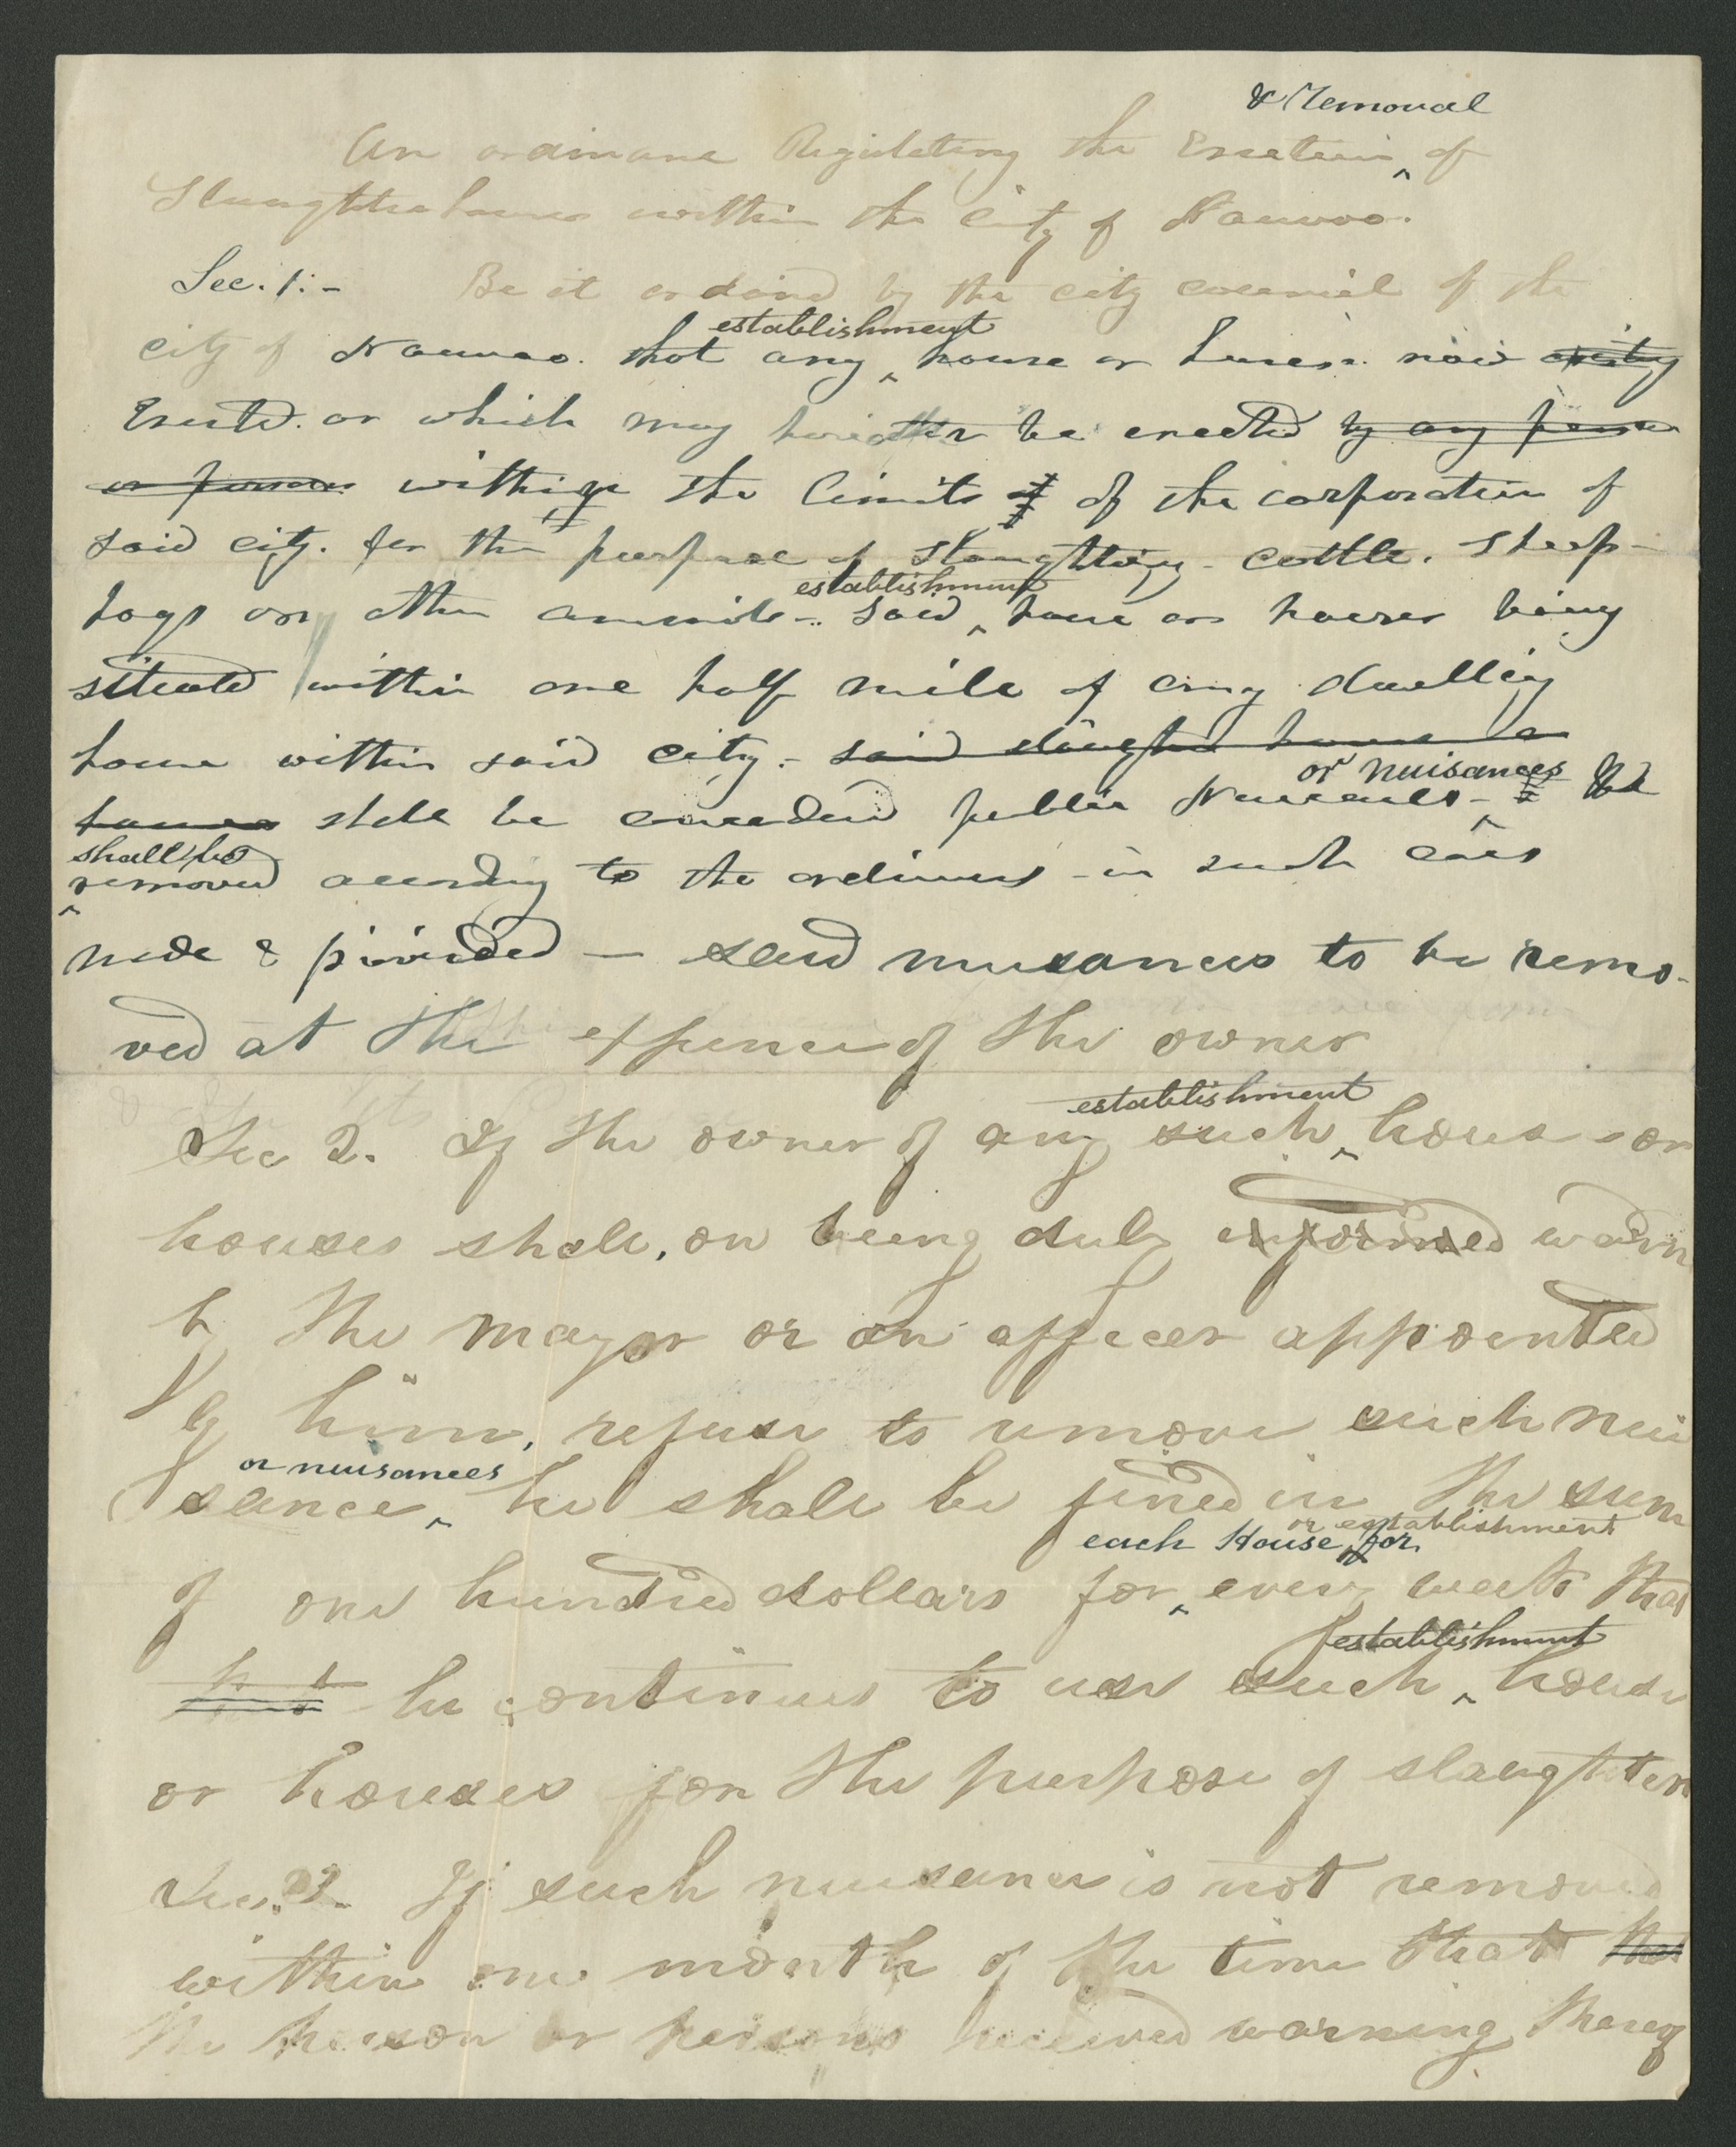 & Removal
An ordinance Regulating the Erection of
Slaughter houses within the city of Nauvoo.
Sec. 1.- Be it ordaind by the city council of the
establishment
city of Nauvoo. that any house or houses. now
Erected. or which may hereafter be erected by any person
or persons within the limits of the corporation of
said city. for the purpose of slaughtering - cattle. sheep -
establishment
hogs or other animals -. said house or houses being
situated within one half mile of any dwelling
house within said city. - said slaughter house or
or nuisances
houses shall be considered public Nuisance - &
shall be
removed according to the ordinances - in such cases
made & provided — said nuisances to be remo-
ved at the expence of the owner
establishment
Sec 2. If the owner of any such house - or
houses shall, on being duly informed warn
by the mayor or an officer appointed
by him, refuse to remove such nui
or nuisances
sance, he shall be fined in the sum
or establishment
each House, for
of one hundred dollars for every week that
establishment
he continues to use such house
or houses for the purpose of slaughter
Sec. 3. If such nuisance is not removed
within one month of the time that the
the person or persons received warning thereof